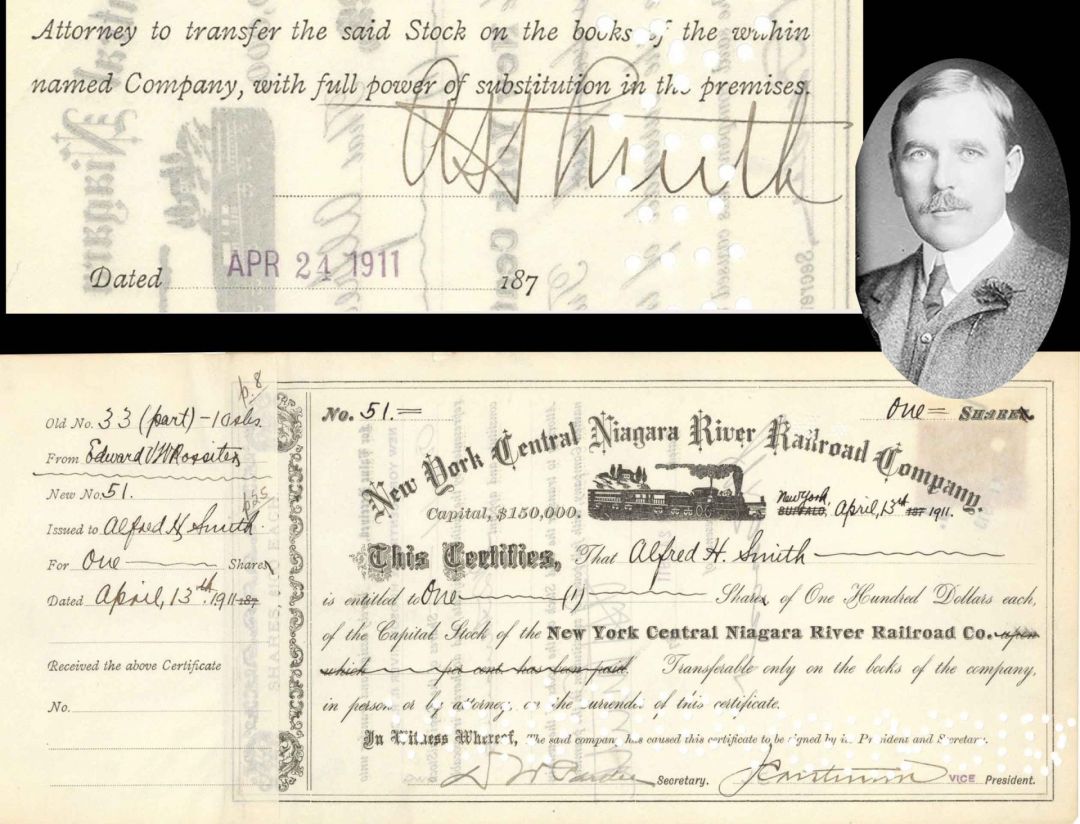 Attorney to transfer the said Stock on the books of the within
named Company, with full power of substitution in the premises.
AH Smith
Dated APR 24 1911 187
p. 8
Old No. 33 (part) - 10 shs.
From Edward V W Rossiter
New No. 51.
Issued to Alfred H. Smith.
For One Share
Dated April, 13th. 1911 187
Received the above Certificate
No.
No. 51.= One= SHARES
New York Central Niagara River Railroad Company.
Capital, $150,000. New York, BUFFALO, April, 13th 187 1911.
This Certifies, That Alfred H. Smith
is entitled to One (1) Shares of One Hundred Dollars each,
of the Capital Stock of the New York Central Niagara River Railroad Co. upon
which per cent. has been paid. Transferable only on the books of the company,
in person or by attorney, on the surrender of this certificate.
In Witness Whereof, The said company has caused this certificate to be signed by its President and Secretary.
D W Pardee Secretary. VICE President.